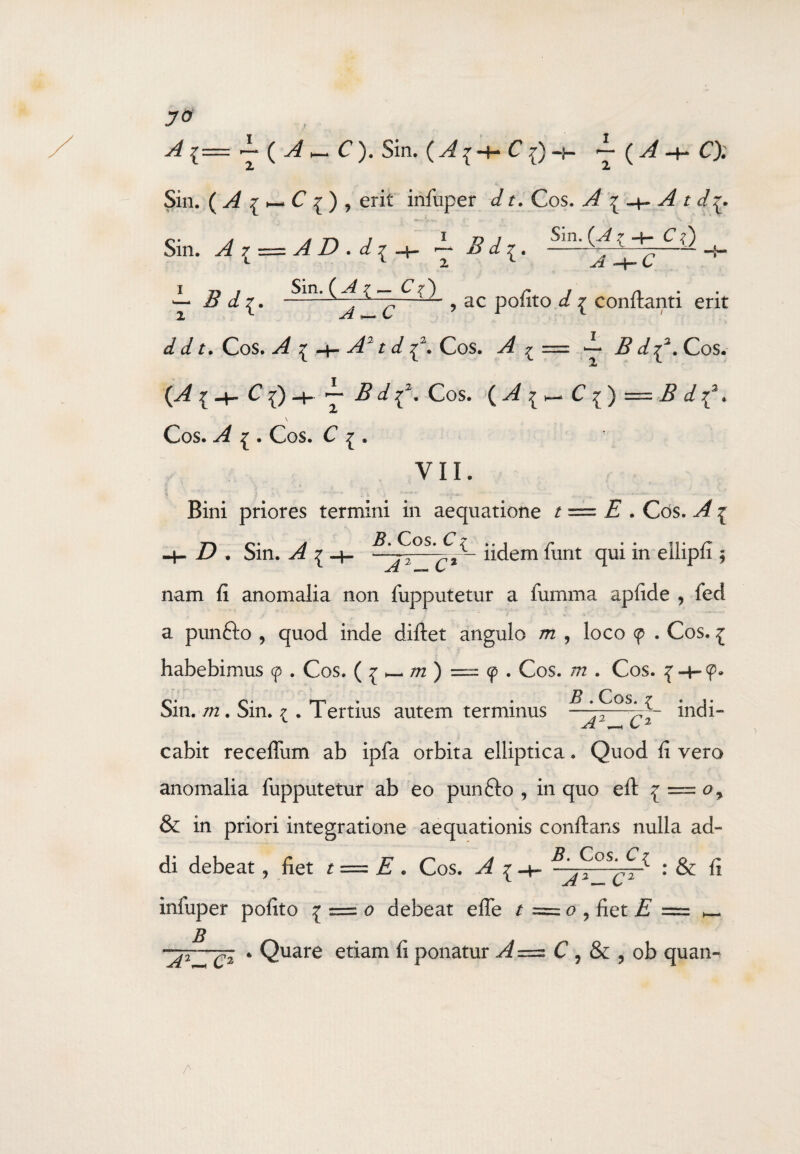 70
A ζ = 1/2 ( A — C ). Sin. ( A ζ + C ζ) + 1/2 ( A + C).
Sin. ( A ζ — C ζ ) , erit infuper d t. Cos. A ζ + A t d ζ.
Sin. A ζ = A D . d ζ + 1/2 B d ζ. Sin. (A ζ + C ζ) / A + C +
1/2 B d ζ. Sin. ( A ζ — C ζ) / A — C , ac pofito d ζ conftanti erit
d d t. Cos. A ζ + A² t d ζ². Cos. A ζ = 1/2 B d ζ². Cos.
(A ζ + C ζ) + 1/2 B d ζ². Cos. ( A ζ — C ζ ) = B d ζ².
Cos. A ζ . Cos. C ζ .
VII.
Bini priores termini in aequatione t = E . Cos. A ζ
+ D . Sin. A ζ + B. Cos. C ζ / A² — C² iidem funt qui in ellipfi ;
nam fi anomalia non fupputetur a fumma apfide , fed
a puncto , quod inde diftet angulo m , loco φ . Cos. ζ
habebimus φ . Cos. ( ζ — m ) = φ . Cos. m . Cos. ζ + φ.
Sin. m . Sin. ζ . Tertius autem terminus B . Cos. ζ / A² — C² indi-
cabit receffum ab ipfa orbita elliptica. Quod fi vero
anomalia fupputetur ab eo puncto , in quo eft ζ = o,
& in priori integratione aequationis conftans nulla ad-
di debeat , fiet t = E . Cos. A ζ + B. Cos. C ζ / A² — C² : & fi
infuper pofito ζ = o debeat effe t = o , fiet E = —
B / A² — C² . Quare etiam fi ponatur A = C , & , ob quan-